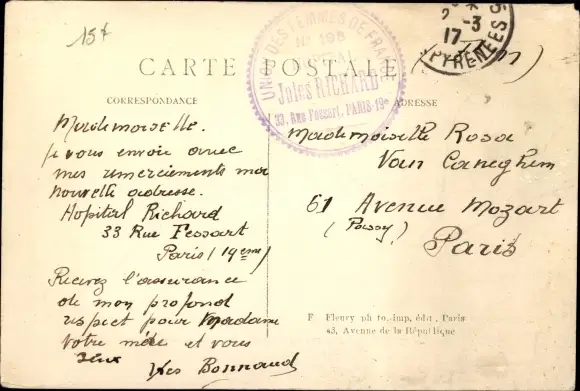 15f
UNION DES FEMMES DE FRANCE
Nº 198
Jules RICHARD
33, Rue Fessart, PARIS-19e
2 -3
17
PYRENEES 5
CARTE POSTALE
CORRESPONDANCE
ADRESSE
Mademoiselle.
je vous envoie avec
mes remerciements ma
nouvelle adresse.
Hopital Richard
33 Rue Fessart
Paris (19eme)
Recevez l'assurance
de mon profond
respect pour Madame
votre mère et vous
Yves Bonnaud
Mademoiselle Rosa
Van Caneghem
61 Avenue Mozart
(Passy)
Paris
F Fleury ph to.-imp. édit , Paris
43, Avenue de la République